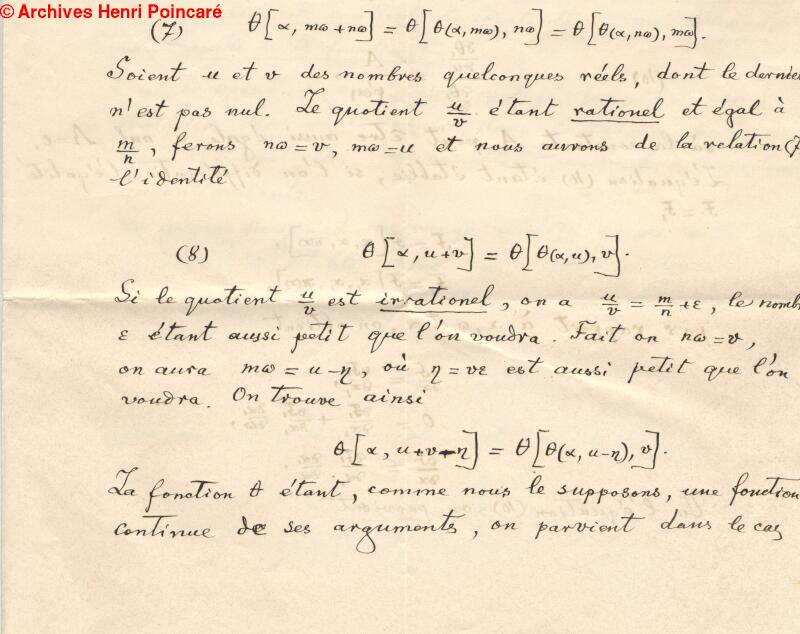 © Archives Henri Poincaré
(7) θ[α, mω+nω] = θ[θ(α, mω), nω] = θ[θ(α, nω), mω].
Soient u et v des nombres quelconques réels, dont le dernier
n'est pas nul. Le quotient u/v étant rationel et égal à
m/n, ferons nω = v, mω = u et nous aurons de la relation (7
l'identité
(8) θ[α, u+v] = θ[θ(α, u), v].
Si le quotient u/v est irrationel, on a u/v = m/n + ε, le nombr
ε étant aussi petit que l'on voudra. Fait on nω = v,
on aura mω = u - η, où η = vε est aussi petit que l'on
voudra. On trouve ainsi
θ[α, u+v-η] = θ[θ(α, u-η), v].
La fonction θ étant, comme nous le supposons, une fonction
continue de ses arguments, on parvient dans le cas